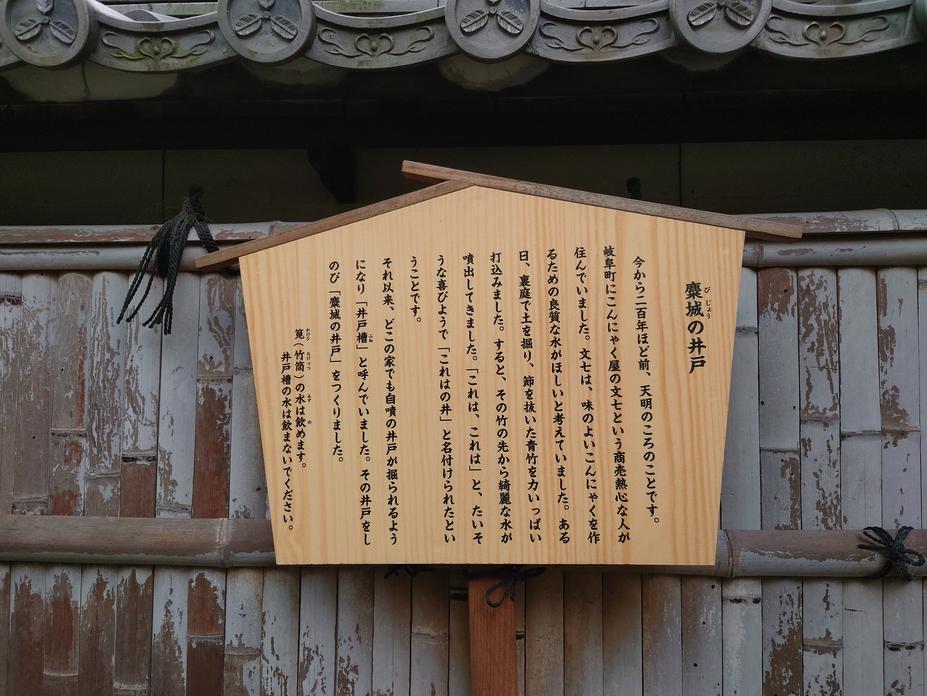 麋城の井戸
びじょう
今から二百年ほど前、天明のころのことです。
岐阜町にこんにゃく屋の文七という商売熱心な人が
住んでいました。文七は、味のよいこんにゃくを作
るための良質な水がほしいと考えていました。ある
日、裏庭で土を掘り、節を抜いた青竹を力いっぱい
打込みました。すると、その竹の先から綺麗な水が
噴出してきました。「これは、これは」と、たいそ
うな喜びようで「これはの井」と名付けられたとい
うことです。
それ以来、どこの家でも自噴の井戸が掘られるよう
になり「井戸槽」と呼んでいました。その井戸をし
ふね
のび「麋城の井戸」をつくりました。
筧(竹筒)の水は飲めます。
かけい たけづつ みず の
井戸槽の水は飲まないでください。